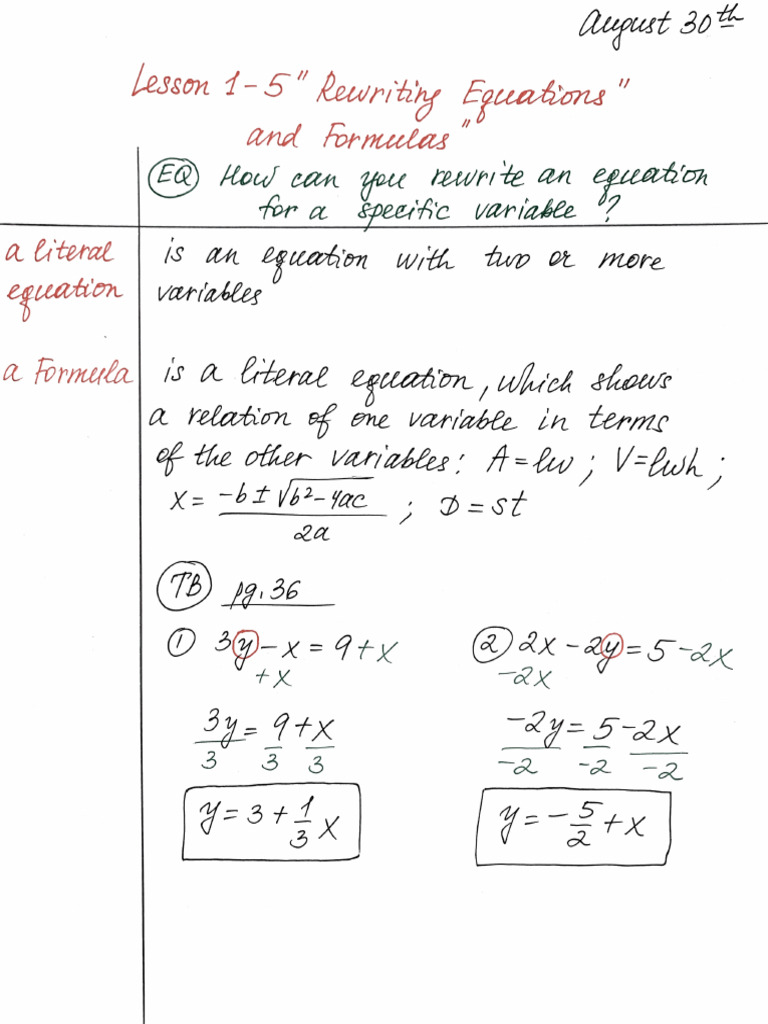 August 30th
Lesson 1-5 "Rewriting Equations"
and Formulas"
EQ How can you rewrite an equation
for a specific variable?
a literal equation is an equation with two or more
variables
a Formula is a literal equation, which shows
a relation of one variable in terms
of the other variables: A = lw ; V = lwh ;
x = (-b ± √(b² - 4ac)) / 2a ; D = st
TB pg. 36
① 3y - x = 9 + x
+x
3y/3 = 9/3 + x/3
y = 3 + 1/3 x
② 2x - 2y = 5 - 2x
-2x
-2y/-2 = 5/-2 - 2x/-2
y = - 5/2 + x